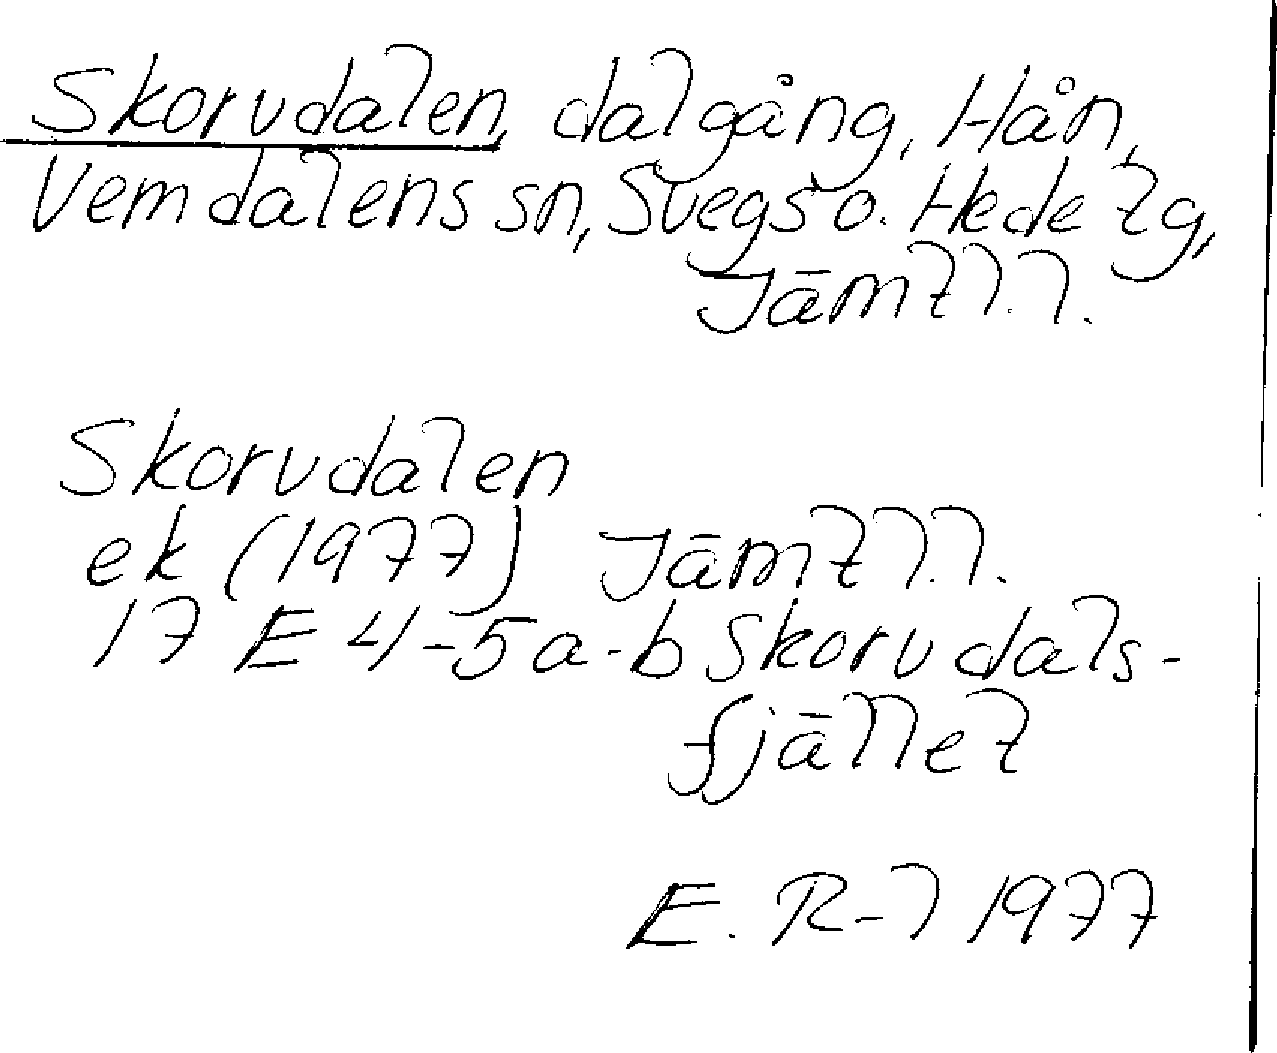 Skorvdalen, dalgång, Hån,
Vemdalens sn, Svegs o. Hede tg,
Jämtl. l.
Skorvdalen
ek (1977) Jämtl. l.
17 E 4-5 a-b Skorvdals-
fjället
E. R-l 1977